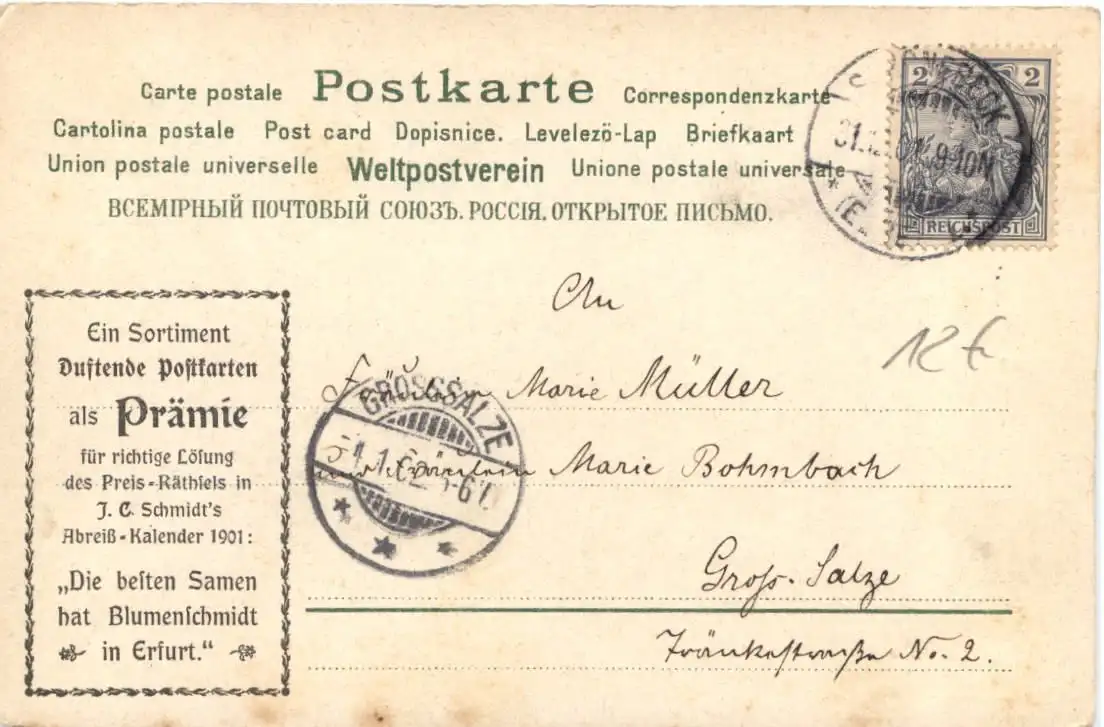 Carte postale Postkarte Correspondenzkarte
Cartolina postale Post card Dopisnice. Levelezö-Lap Briefkaart
Union postale universelle Weltpostverein Unione postale universale
ВСЕМІРНЫЙ ПОЧТОВЫЙ СОЮЗЪ. РОССІЯ. ОТКРЫТОЕ ПИСЬМО.
2 2
REICHSPOST
9-10N
An
12 €
Fräulein Marie Müller
GROSSSALZE
Fräulein Marie Bohmbach
Gross-Salze
Tränkestraße No. 2.
Ein Sortiment
Duftende Postkarten
als Prämie
für richtige Löſung
des Preis-Räthſels in
J. C. Schmidt's
Abreiß-Kalender 1901:
„Die beſten Samen
hat Blumenſchmidt
in Erfurt."